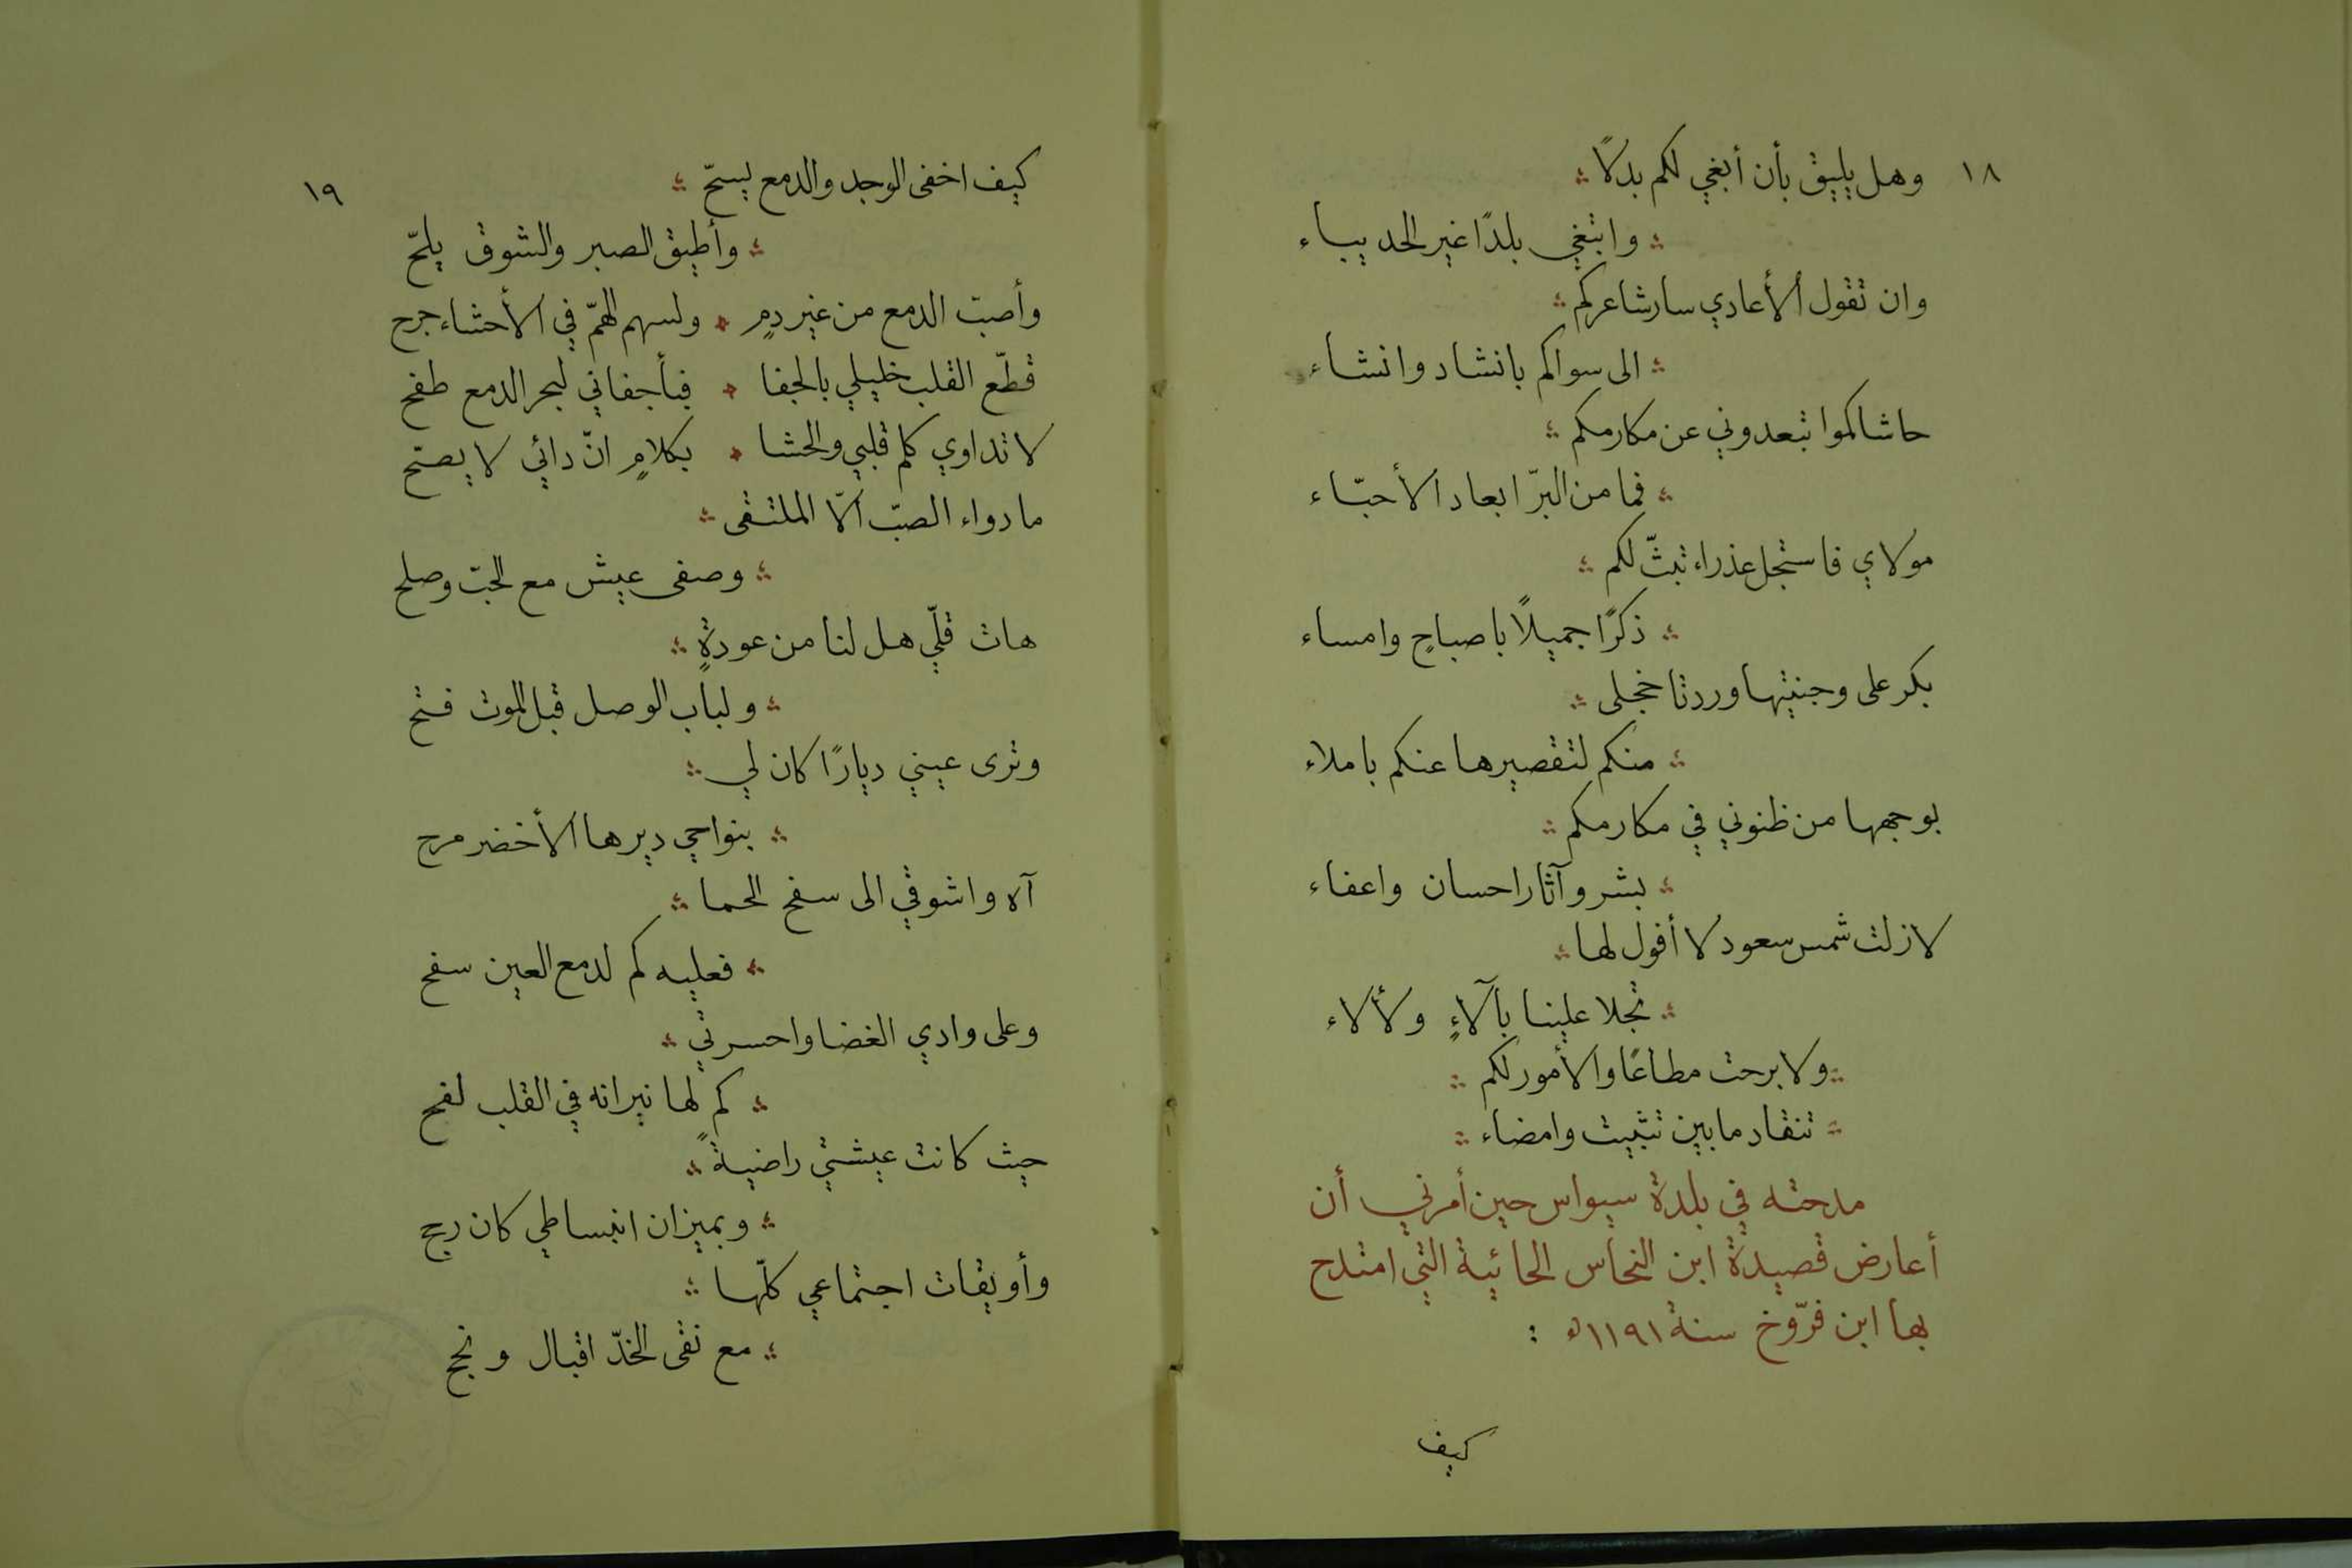 ١٨
وهل يليق بأن أبغي لكم بدلاً
وابتغي بلدًا غير الحديباء
وان تقول ألأعادي سار شاعركم
الى سواكم بانشاد وانشاء
حاشاكموا تبعدوني عن مكارمكم
فما من البرّ ابعاد الأحبّاء
مولاي فاستجل عذراء تبثّ لكم
ذكرًا جميلاً باصباحٍ وامساء
بكر على وجنيتها وردتا خجلى
منكم لتقصيرها عنكم باملاء
بوجهها من ظنوني في مكارمكم
بشر وآثار احسان واعفاء
لازلت شمس سعود لا أفول لها
تجلا علينا بآلاءٍ ولألاء
ولا برحت مطاعًا والأمور لكم
تنقاد مابين تثبيت وامضاء
مدحته في بلدة سيواس حين أمرني أن
أعارض قصيدة ابن النحاس الحائية التي امتدح
بها ابن فرّوخ سنة ١١٩١ه :
كيف
١٩
كيف اخفى الوجد والدمع يسحّ
وأطيق الصبر والشوق يلحّ
وأصبّ الدمع من غير دمٍ ولسهم الهمّ في الأحشاء جرح
قطّع القلب خليلي بالجفا فبأجفاني لبحر الدمع طفح
لا تداوي كلم قلبي والحشا بكلامٍ انّ دائي لا يصحّ
ما دواء الصبّ الّا الملتقى
وصفى عيش مع الحبّ وصلح
هات قلّي هل لنا من عودةٍ
ولباب الوصل قبل الموت فتح
وترى عيني ديارًا كان لي
بنواحي ديرها الأخضر مرح
آه واشوقي الى سفح الحما
فعليه كم لدمع العين سفح
وعلى وادي الغضا واحسرتي
كم لها نيرانه في القلب لفح
حيث كانت عيشتي راضيةً
وبميزان انبساطي كان رجح
وأويقات اجتماعي كلّها
مع نقى الخدّ اقبال ونجح